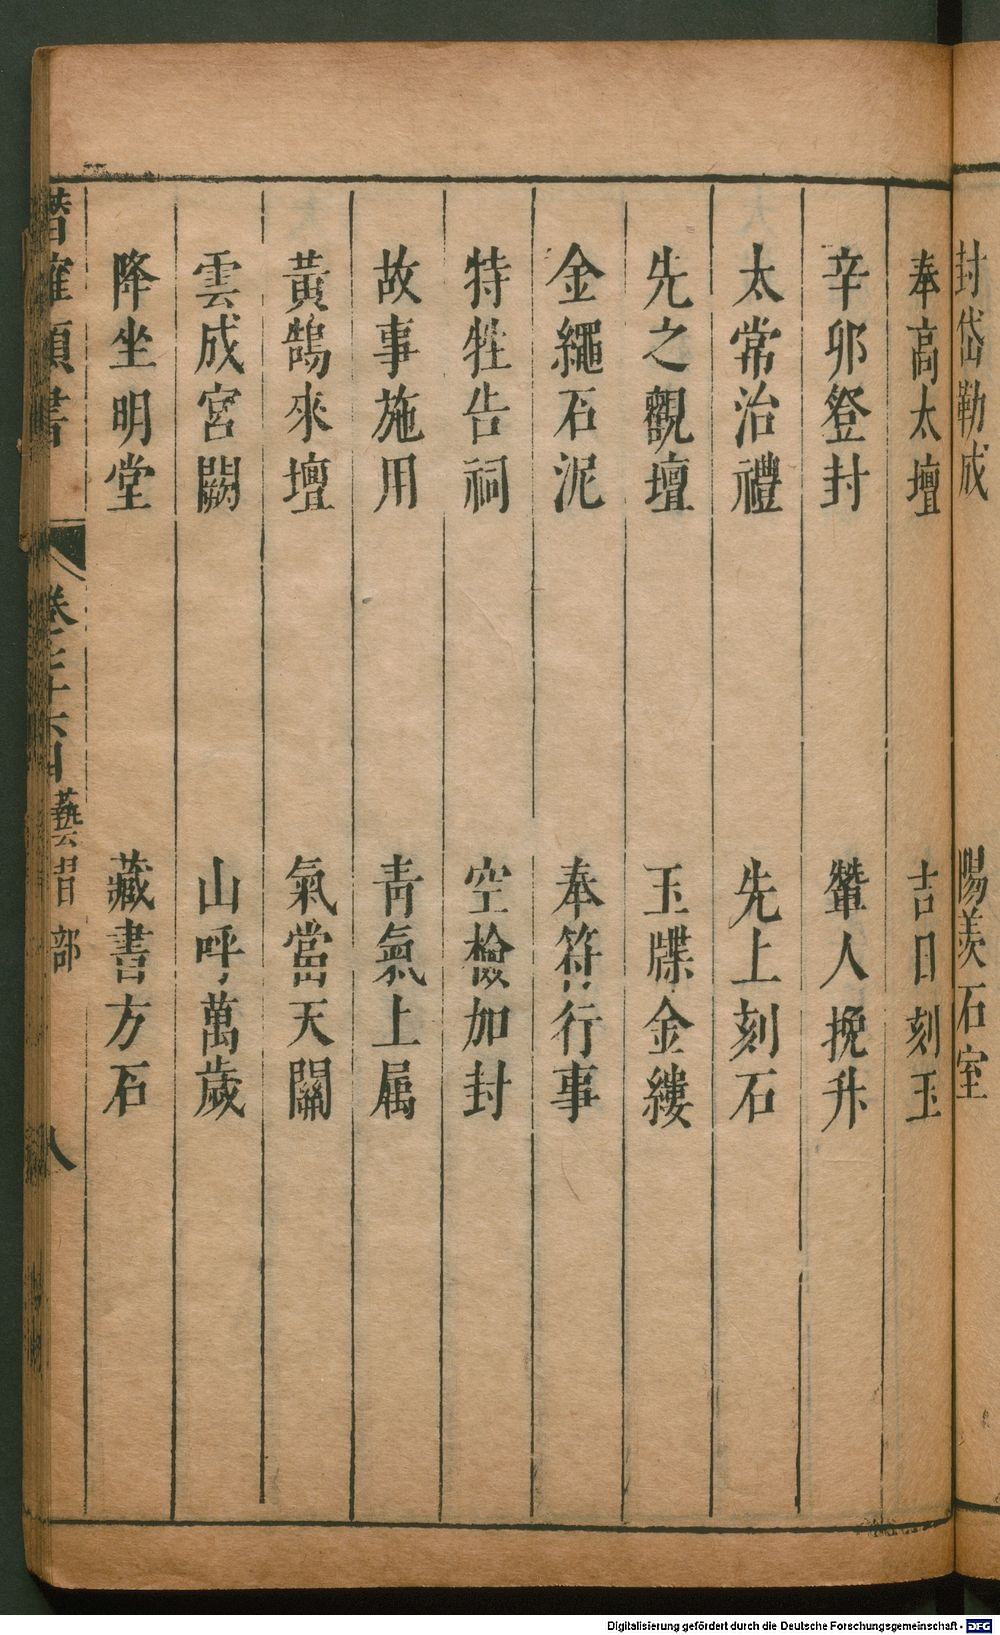 封岱勒成 陽羨石室
奉高太壇 吉日刻玉
辛卯登封 輦人挽升
太常治禮 先上刻石
先之觀壇 玉牒金縷
金繩石泥 奉符行事
特牲告祠 空檢加封
故事施用 青氣上屬
黃鵠來壇 氣當天關
雲成宮闕 山呼萬歲
降坐明堂 藏書方石
潛確類書 卷 藝習部 八
Digitalisierung gefördert durch die Deutsche Forschungsgemeinschaft - DFG